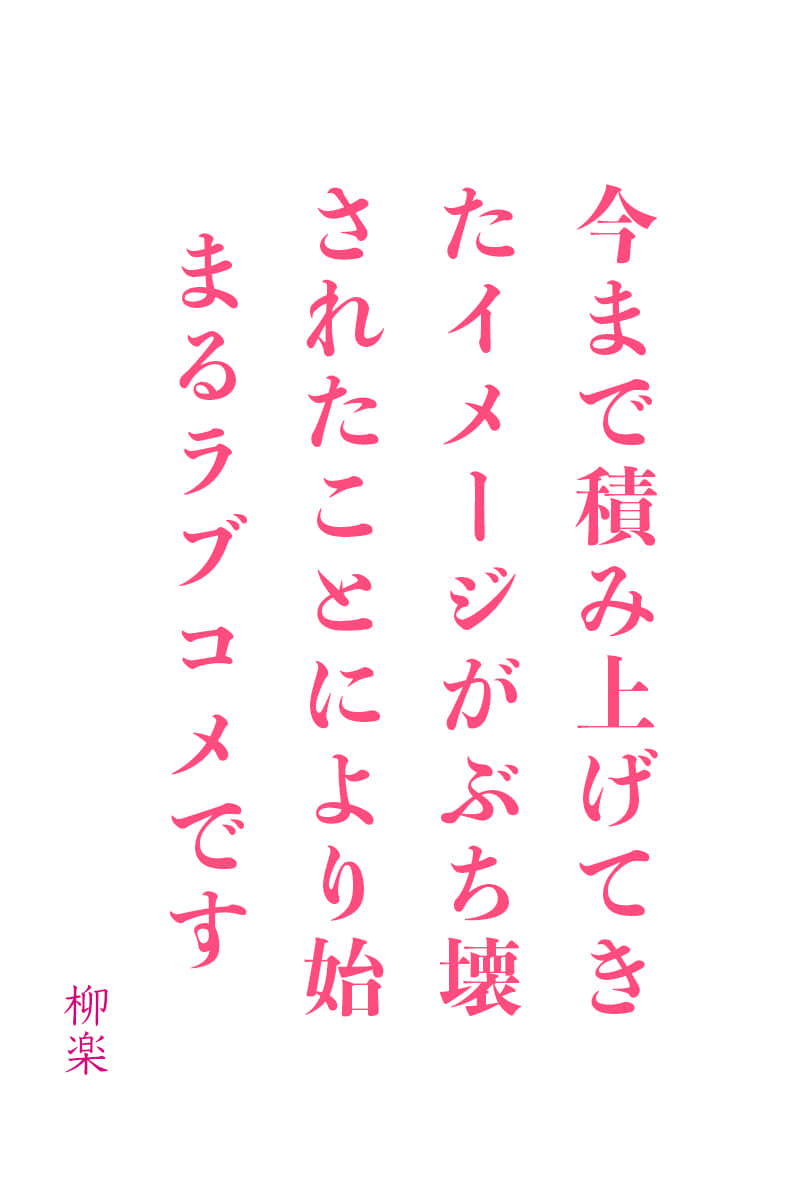 今まで積み上げてき
たイメージがぶち壊
されたことにより始
まるラブコメです
柳楽